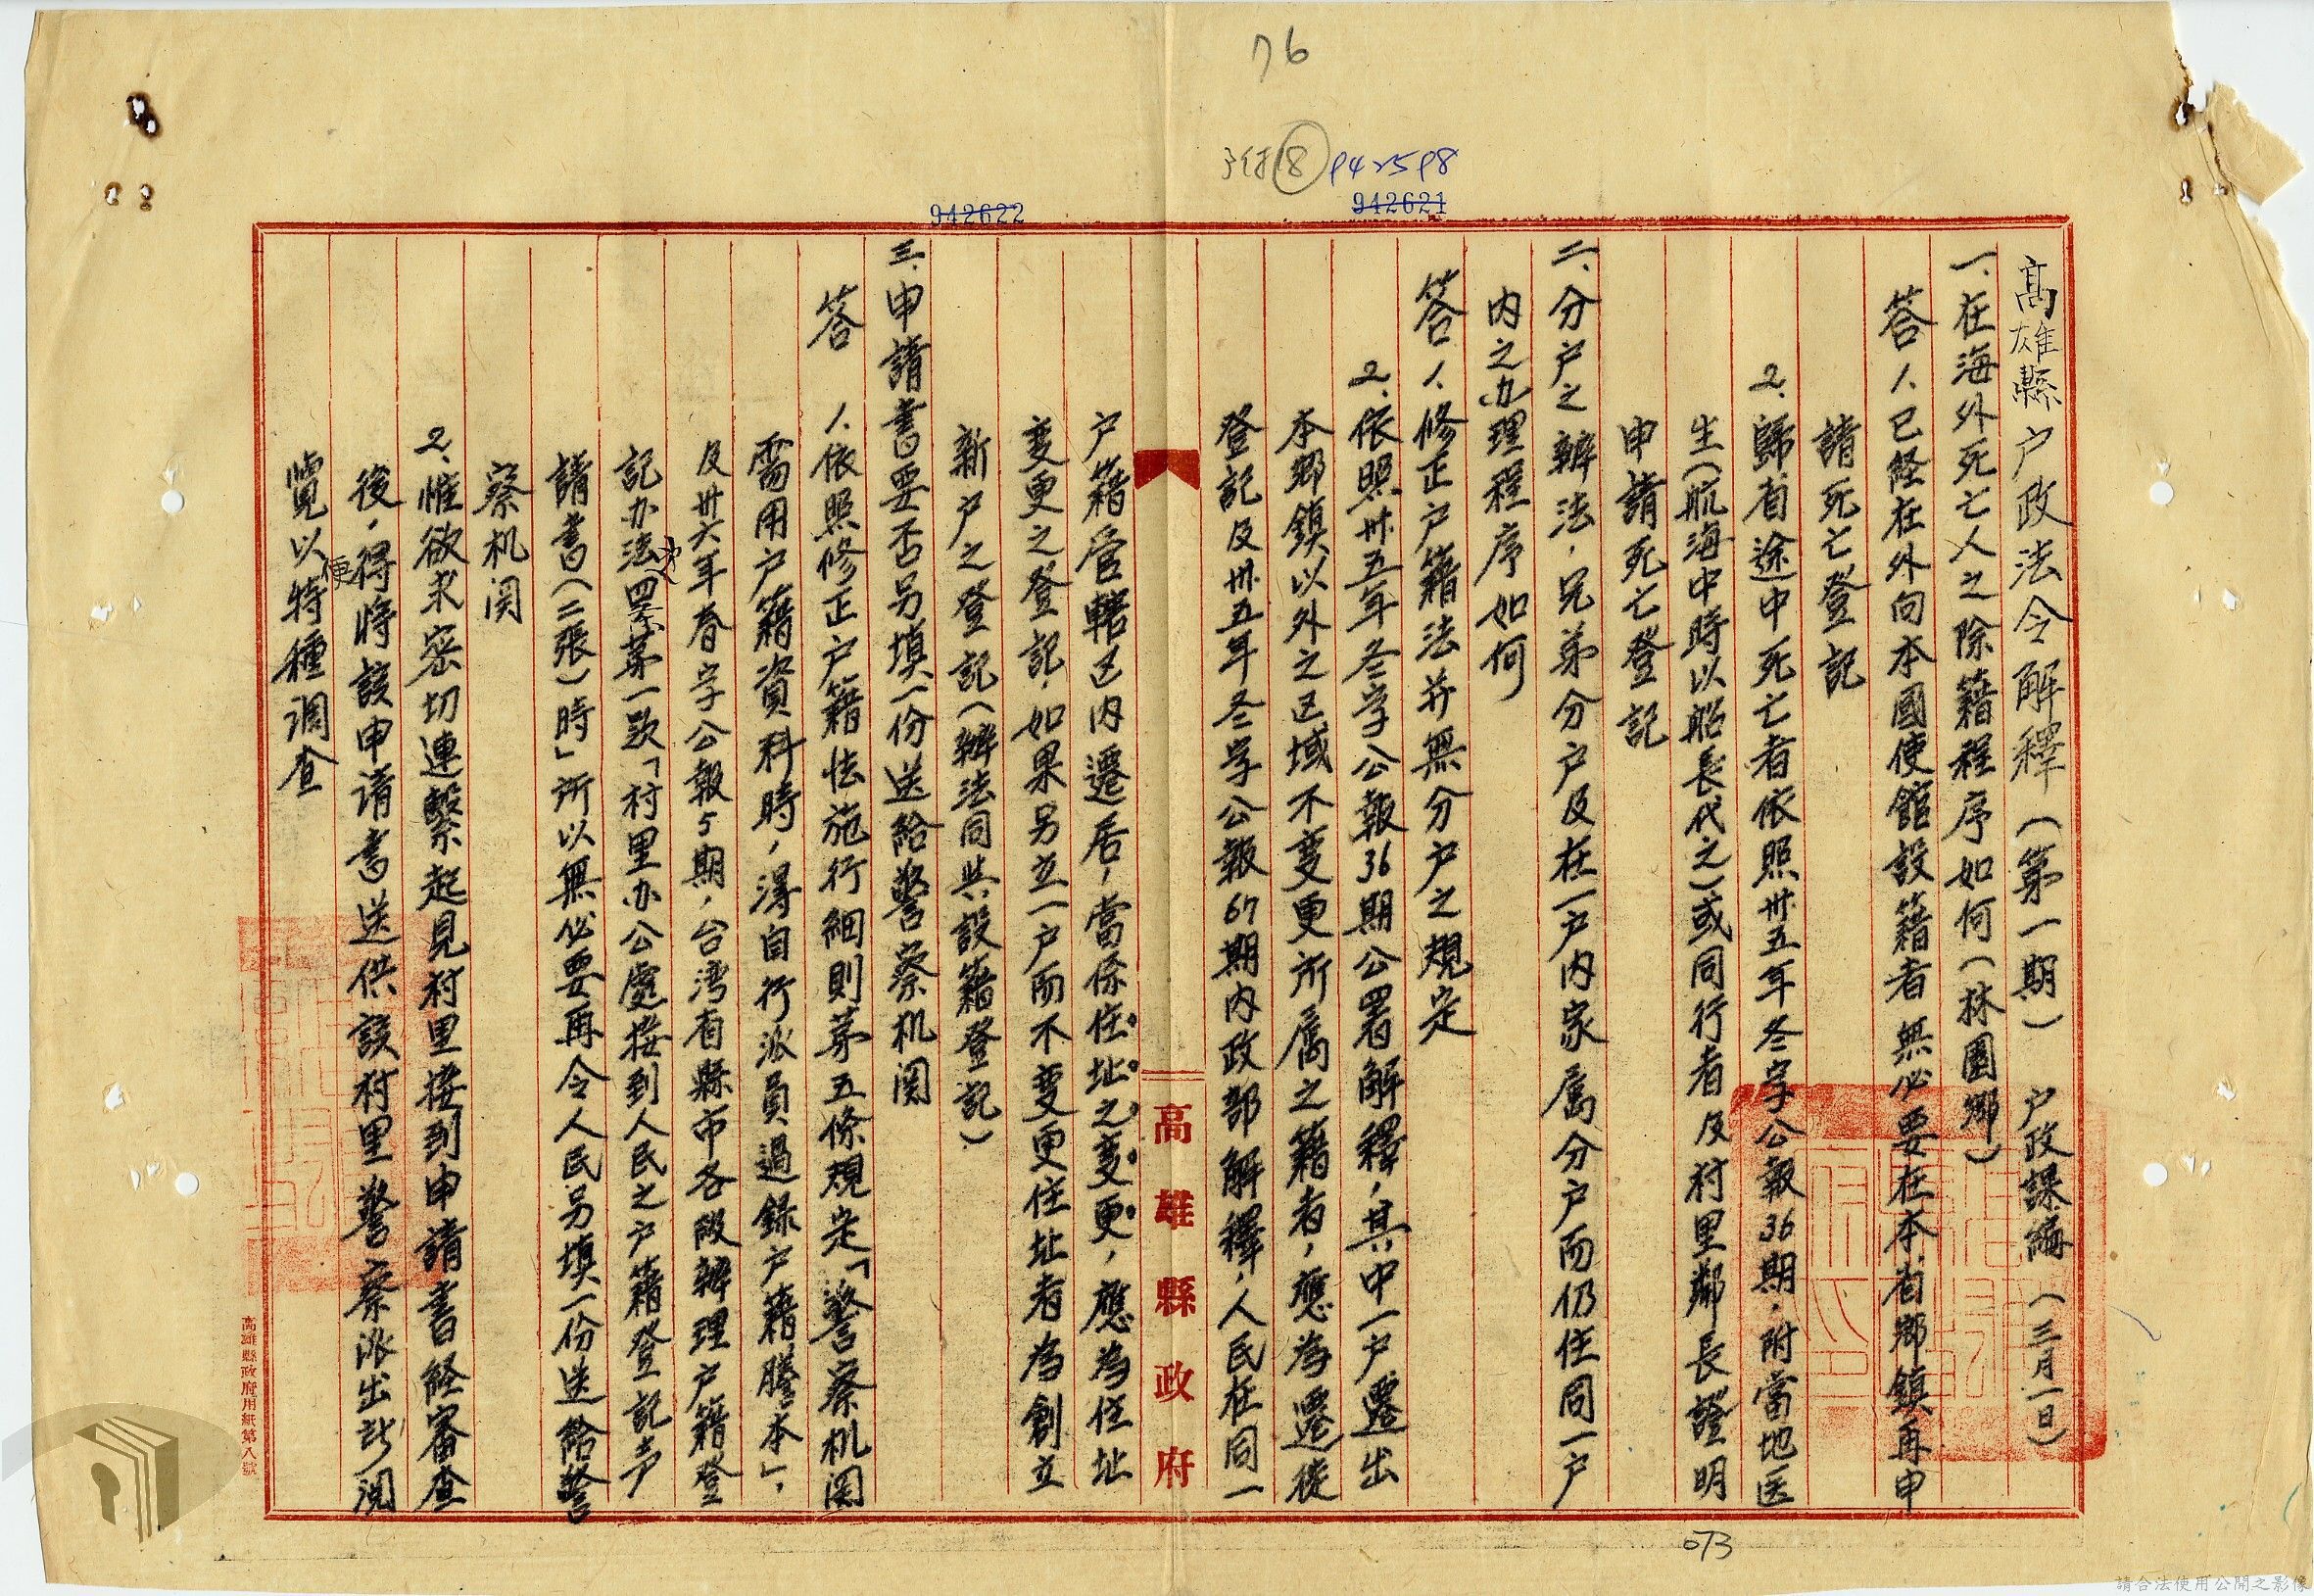 76
18 942598
942621
942622
高雄縣户政法令解釋(第一期) 户政課編(三月一日)
一、在海外死亡人之除籍程序如何(林園鄉)
答 1、已経在外向本國使館設籍者無必要在本省鄉鎮再申
請死亡登記
2、歸省途中死亡者依照卅五年冬字公報36期,附當地医
生(航海中時以船長代之)或同行者及村里鄰長證明
申請死亡登記
二、分户之辦法,兄弟分户及在一户内家属分户而仍住同一户
内之办理程序如何
答 1、修正户籍法并無分户之規定
2、依照卅五年冬字公報36期公署解釋,其中一户遷出
本鄉鎮以外之区域不変更所属之籍者,應為遷徙
登記及卅五年冬字公報67期内政部解釋,人民在同一
高雄縣政府
户籍管轄区内遷居,當係住址之変更,應為住址
変更之登記,如果另立一户而不变更住址者為創立
新户之登記(辦法同與設籍登記)
三、申請書要否另填一份送給警察机関
答 1、依照修正户籍法施行細則第五條規定「警察机関
需用户籍資料時,得自行派員過錄户籍謄本」,
及卅六年春字公報5期,台湾省縣市各段辦理户籍登
記办法第一款「村里办公處接到人民之户籍登記声
請書(二張)時」所以無必要再令人民另填一份送給警
察机関
2、惟欲求密切連繫起見村里接到申請書経審查
後,得將該申請書送供該村里警察派出所閲
覽以便特種調查
高雄縣政府用紙第八號
073
請合法使用公開之影像